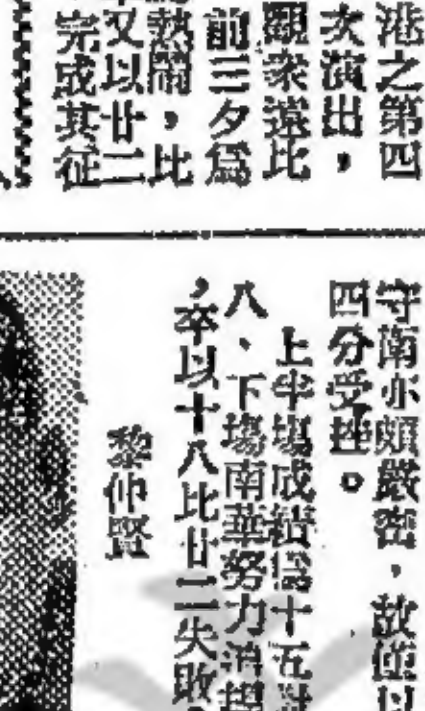 港之第四
次演出，
觀衆遠比
前三夕爲
熱鬧，比
又以廿二
完或其征
守南亦頗嚴密，故僅以
四分受挫。
上半塲成績爲十五對
八、下塲南華努力追趕
，卒以十八比廿二失敗。
黎仲賢